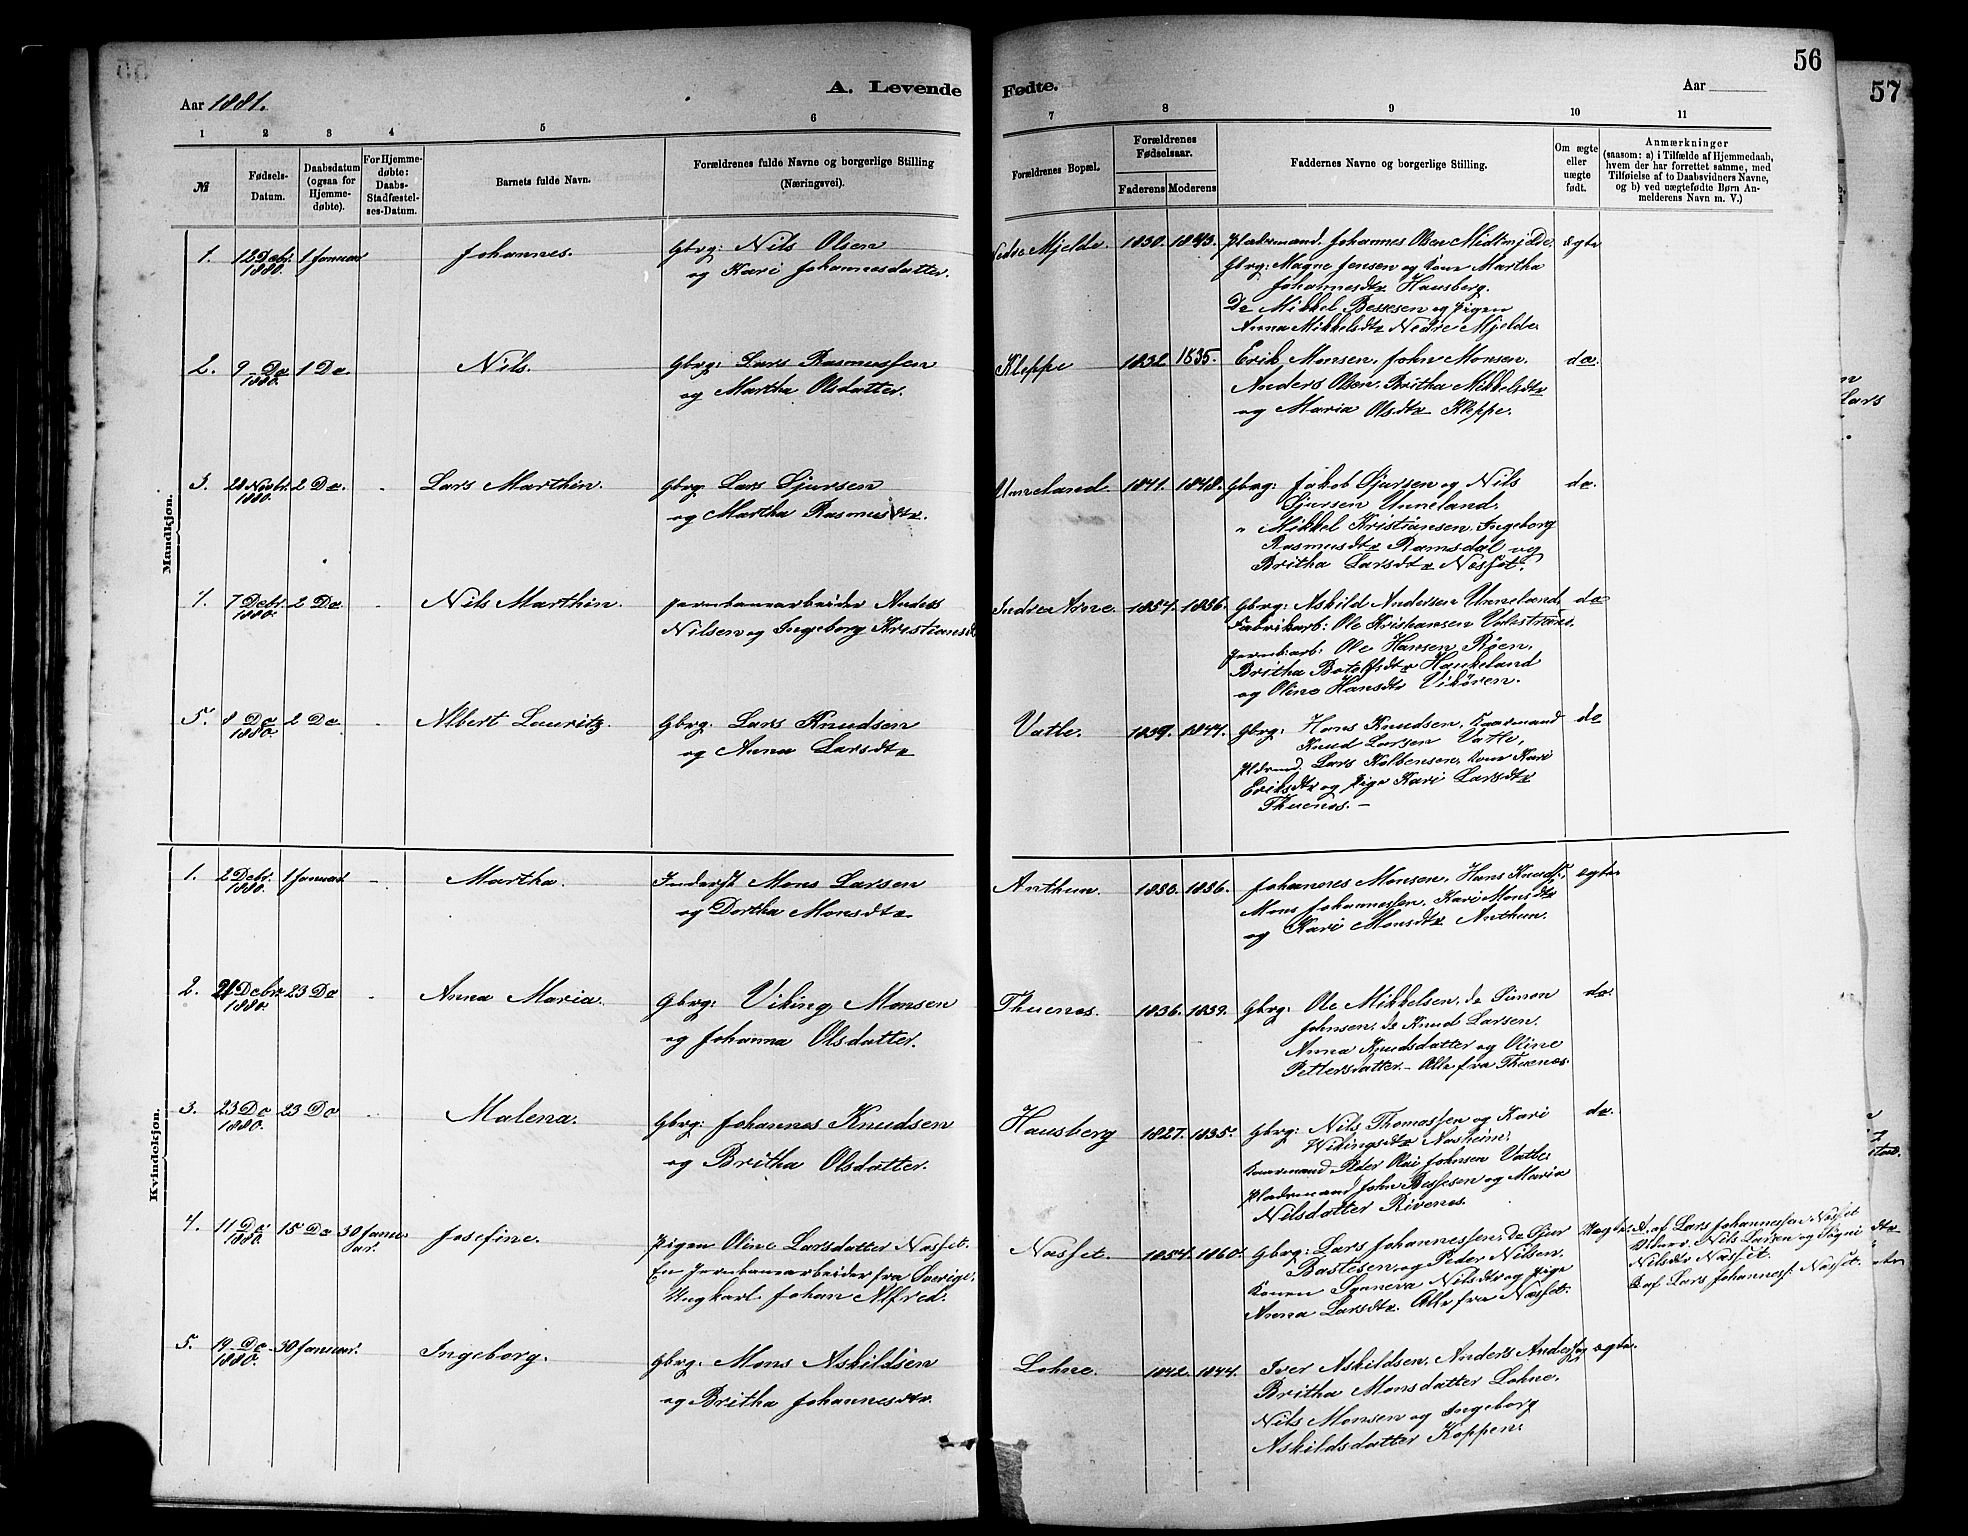 56
57
Aar 1881.
A. Levende
Fødte.
Aar
1 2 3 4 5 6 7 8 9 10 11
№
Fødsels-Datum.
Daabsdatum (ogsaa for Hjemme-døbte).
For Hjemme-døbte: Daabs-Stadfæstel-ses-Datum.
Barnets fulde Navn.
Forældrenes fulde Navne og borgerlige Stilling (Næringsvei).
Forældrenes Bopæl.
Forældrenes Fødselsaar.
Faderens Moderens
Faddernes Navne og borgerlige Stilling.
Om ægte eller uægte født.
Anmærkninger
(saasom: a) i Tilfælde af Hjemmedaab,
hvem der har forrettet samme, med
Tilføielse af to Daabsvidners Navne,
og b) ved uægtefødte Børn An-
melderens Navn m. V.)
Mandkjøn.
1. 12 Debr. 1880. 1 Januar Johannes. Gbrg: Nils Olsen
og Kari Johannesdatter.
Nedre Mjelde. 1830. 1843. Pladsmand. Johannes Olsen Midtmjelde. ægte
Gbrg: Magne Jensen og Kone Martha
Johannesdtr Hausberg.
Do Mikkel Bessesen og Pigen
Anna Mikkelsdtr Nedre Mjelde.
2. 9 Do 1880. 1 Do. Nils. Gbrg: Lars Rasmussen
og Martha Olsdatter.
Kleppe 1832 1835. Erik Monsen, John Monsen, do.
Anders Olsen, Britha Mikkelsdtr
og Maria Olsdtr Kleppe.
3. 28 Novbr. 1880. 2 Do. Lars Marthin. Gbrg Lars Sjursen
og Martha Rasmusdtr.
Unneland. 1841. 1848. Gbrg: Jakob Sjursen og Nils do.
Sjursen Unneland,
" Mikkel Kristiansen, Ingeborg
Rasmusdtr Ramsdal og
Britha Larsdtr Næsset.
4. 7 Debr. 1880. 2 Do. Nils Marthin. Jernbanearbeider Anders
Nilsen og Ingeborg Kristiansd
Indre Arne. 1854. 1856. Gbrg: Askild Andersen Unneland, do
Fabrikarb: Ole Kristiansen
Jernb.arb. Ole Hansen Røen,
Britha Botolfsdtr Haukeland
og Oline Hansdtr Vikören.
5. 8 Do 1880. 2 Do Albert Lauritz. Gbrg. Lars Knudsen
og Anna Larsdtr
Vatle. 1839. 1844. Gbrg: Hans Knudsen, Kaarmand do
Knud Larsen Vatle,
Pldsmd. Lars Kolbensen, Kone Kari
Eriksdtr og Pige Kari Larsdtr
Thuenæs.-
Kvindekjøn.
1. 2 Debr. 1880. 1 Januar Martha. Inderst Mons Larsen
og Dortha Monsdtr
Anthun. 1830. 1836. Johannes Monsen, Hans Knuds. ægte.
Mons Johannessen, Kari Monsdtr
og Kari Monsdtr Anthun.
2. 21 Debr. 1880. 23 Do Anna Maria. Gbrg: Viking Monsen
og Johanna Olsdatter.
Thuenæs. 1836. 1839. Gbrg: Ole Mikkelsen, do Simon do.
Johnsen, do Knud Larsen.
Anna Knudsdatter og Oline
Pettersdatter.- Alle fra Thuenæs.
3. 23 Do 1880. 23 Do Malena. Gbrg: Johannes Knudsen
og Britha Olsdatter.
Hausberg 1827. 1835. Gbrg: Nils Thomassen og Kari do.
Vikingsdtr Aasheim,
Kaarmand Peder Olai Johnsen Vatle.
Pladsmand John Bessesen og Maria
Nilsdatter Rivenæs.
4. 11 Do 1880. 15 Do 30 Januar. Josefine. Pigen Oline Larsdatter Næsset.
En Jernbanearbeider fra Sverige,
Ungkarl Johan Alfred.
Næsset. 1854. 1860. Gbrg: Lars Johannessen, do Sjur Uægte.
Bastesen, og Peder Nilsen.
Konen Synneva Nilsdtr og Pige
Anna Larsdtr. Alle fra Næsset.
A. af Lars Johannessen Næsset
Vidner. Nils Larsen og Søgni
Nilsdtr Næsset.
B af Lars Johanness. Næsset.
5. 19 Do 1880. 30 Januar. Ingeborg. Gbrg: Mons Askildsen
og Britha Johannesdtr.
Lohne. 1842. 1844. Iver Askildsen, Anders Anderssen ægte.
Britha Monsdatter Lohne,
Nils Monsen og Ingeborg
Askildsdatter Koppen.